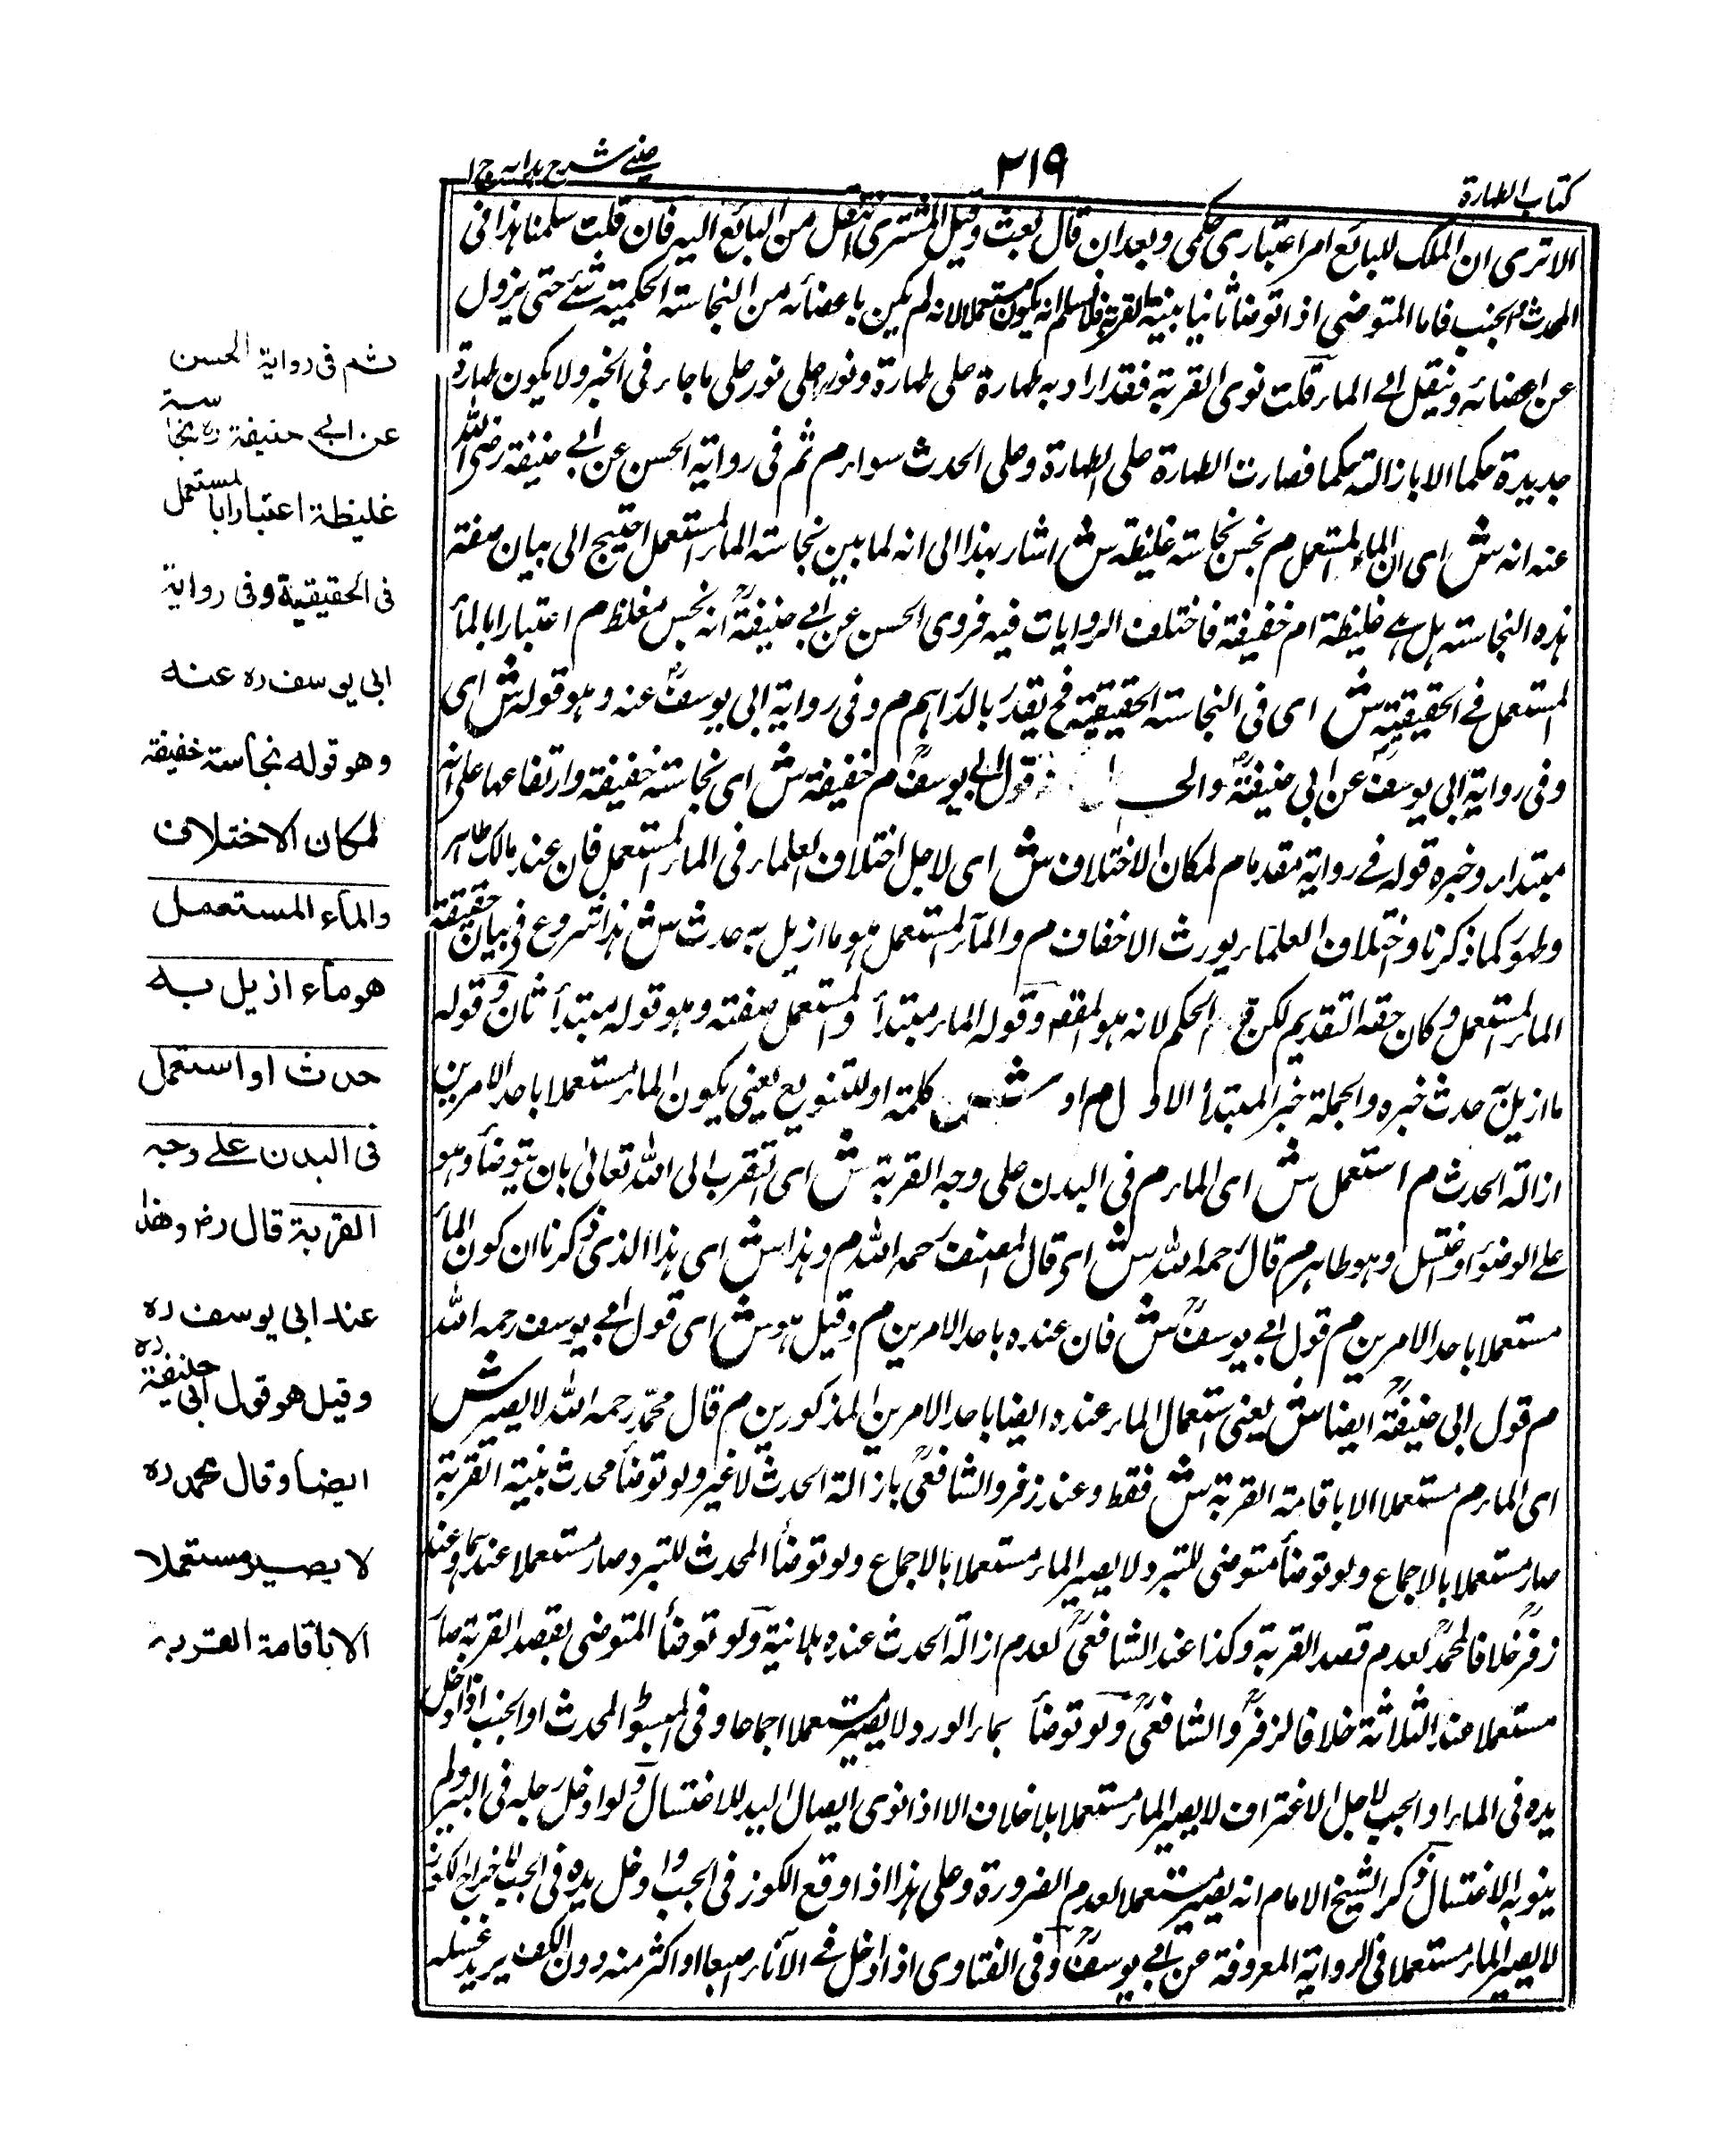 كتاب الطهارة
٢١٩
عيني شرح هدايه ج ١
الا ترى ان الملك للبائع امر اعتباري حكمي وبعد ان قال بعت وقبل المشترى انتقل من البائع اليه فان قلت سلمنا هذا فى
المحدث والجنب فاما المتوضى اذا توضأ ثانيا بنية القربة فلا نسلم انه يكون مستعملا لانه لم يكن باعضائه من النجاسة الحكمية شئ حتى يزول
عن اعضائه وينتقل الى الماء قلت نوى القربة فقد اراد به طهارة على طهارة ونورا على نور على ما جاء فى الخبر ولا يكون طهارة
جديدة حكما الا بازالته حكما فصارت الطهارة على الطهارة وعلى الحدث سواء م ثم فى رواية الحسن عن ابى حنيفة رضى الله
عنه انه ش اى ان الماء المستعمل م نجس نجاسة غليظة ش اشار بهذا الى انه لما بين نجاسة الماء المستعمل احتيج الى بيان صفة
هذه النجاسة هل هى غليظة ام خفيفة فاختلف الروايات فيه فروى الحسن عن ابى حنيفة انه نجس مغلظ م اعتبارا بالماء
المستعمل فى الحقيقية ش اى فى النجاسة الحقيقية فح يقدر بالدراهم م وفى رواية ابى يوسف عنه وهو قوله ش اى
وفى رواية ابى يوسف عن ابى حنيفة قول ابى يوسف م خفيفة ش اى نجاسة خفيفة وارتفاعها على انه
مبتداء وخبره قوله فى رواية مقدما م لمكان الاختلاف ش اى لاجل اختلاف العلماء فى الماء المستعمل فان عند مالك طاهر
وطهور كما ذكرنا واختلاف العلماء يورث الاخفاف م والماء المستعمل هو ما ازيل به حدث ش هذا شروع فى بيان حقيقة
الماء المستعمل وكان حقه التقديم لكن الحكم لانه هو المقصد وقوله الماء مبتدأ والمستعمل صفته وهو قوله مبتدأ ثان وقوله
ما ازيل به حدث خبره والجملة خبر المبتدأ الاول م او ش كلمة او للتنويع يعنى يكون الماء مستعملا باحد الامرين
ازالة الحدث م استعمل ش اى الماء م فى البدن على وجه القربة ش اى التقرب الى الله تعالى بان يتوضأ وهو
على الوضوء او اغتسل وهو طاهر م قال رحمه الله ش اى قال المصنف رحمه الله م وهذا ش اى هذا الذى ذكرنا ان كون الماء
مستعملا باحد الامرين م قول ابى يوسف ش فان عنده باحد الامرين م وقيل هو ش اى قول ابى يوسف رحمه الله
م قول ابى حنيفة ايضا ش يعنى استعمال الماء عنده ايضا باحد الامرين المذكورين م قال محمد رحمه الله لا يصير ش
اى الماء م مستعملا الا باقامة القربة ش فقط وعند زفر والشافعى بازالة الحدث لا غير ولو توضأ محدث بنية القربة
صار مستعملا بالاجماع ولو توضأ متوضى للتبرد لا يصير الماء مستعملا بالاجماع ولو توضأ المحدث للتبرد صار مستعملا عندهما وعند
زفر خلافا لمحمد لعدم قصد القربة وكذا عند الشافعى لعدم ازالة الحدث عنده بلا نية ولو توضأ المتوضى بقصد القربة صار
مستعملا عند الثلاثة خلافا لزفر والشافعى ولو توضأ بماء الورد لا يصير مستعملا اجماعا وفى المبسوط المحدث او الجنب اذا ادخل
يده فى الماء او الجب لاجل الاغتراف لا يصير الماء مستعملا بلا خلاف الا اذا نوى ايصال اليد للاغتسال ولو ادخل رجله فى البير ولم
ينو به الاغتسال ذكر الشيخ الامام انه يصير مستعملا لعدم الضرورة وعلى هذا اذا وقع الكوز فى الجب وادخل يده فى الجب لاخراج الكوز
لا يصير الماء مستعملا فى الرواية المعروفة عن ابى يوسف وفى الفتاوى اذا ادخل فى الاناء اصبعا او اكثر منه دون الكف يريد غسله
ثم فى رواية الحسن
عن ابى حنيفة ره نجاسة
غليظة اعتبارا بالمستعمل
فى الحقيقية وفى رواية
ابى يوسف ره عنه
وهو قوله نجاسة خفيفة
لمكان الاختلاف
والماء المستعمل
هو ماء ازيل به
حدث او استعمل
فى البدن على وجه
القربة قال رض وهذا
عند ابى يوسف ره
وقيل هو قول ابى حنيفة ره
ايضا وقال محمد ره
لا يصير مستعملا
الا باقامة القربة